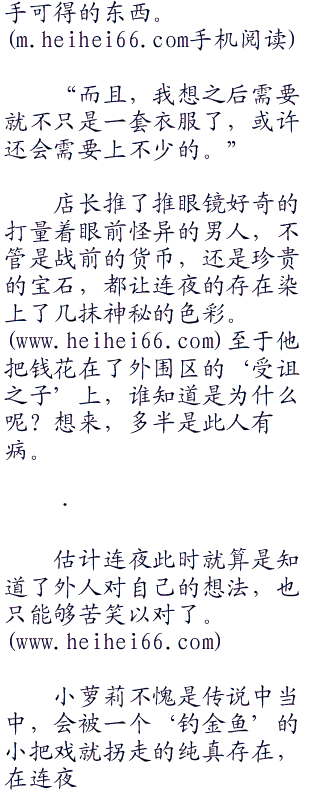 手可得的东西。
(m.heihei66.com手机阅读)
“而且，我想之后需要
就不只是一套衣服了，或许
还会需要上不少的。”
店长推了推眼镜好奇的
打量着眼前怪异的男人，不
管是战前的货币，还是珍贵
的宝石，都让连夜的存在染
上了几抹神秘的色彩。
(www.heihei66.com)至于他
把钱花在了外围区的‘受诅
之子’上，谁知道是为什么
呢？想来，多半是此人有
病。
.
估计连夜此时就算是知
道了外人对自己的想法，也
只能够苦笑以对了。
(www.heihei66.com)
小萝莉不愧是传说中当
中，会被一个‘钓金鱼’的
小把戏就拐走的纯真存在，
在连夜